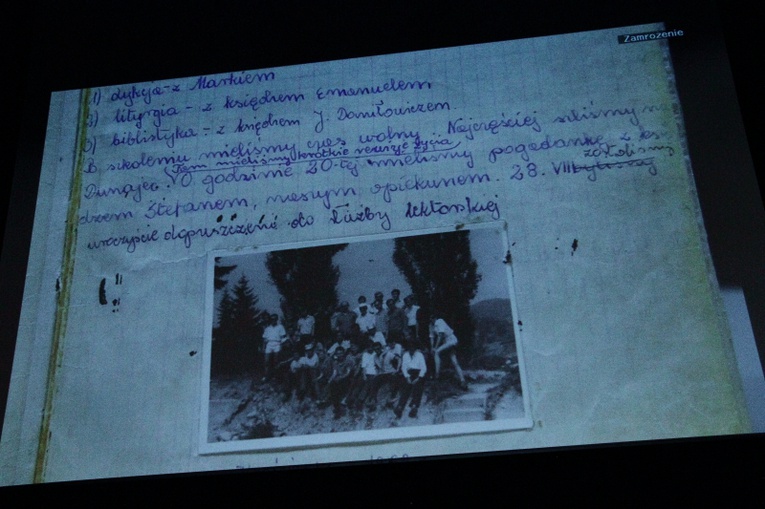 Zamrożenie
1) dykcja - z Markiem
2) liturgia - z księdzem Emanuelem
3) biblistyka - z księdzem J. Daniłowiczem.
B. szkoleniu mieliśmy czas wolny. Najczęściej szliśmy
Tam mieliśmy krótkie rewizje życia
Dunajec. O godzinie 20-tej mieliśmy pogadankę z
zostaliśmy
dzem Stefanem, naszym opiekunem. 28. VIII
uroczyście dopuszczeni do służby lektorskiej